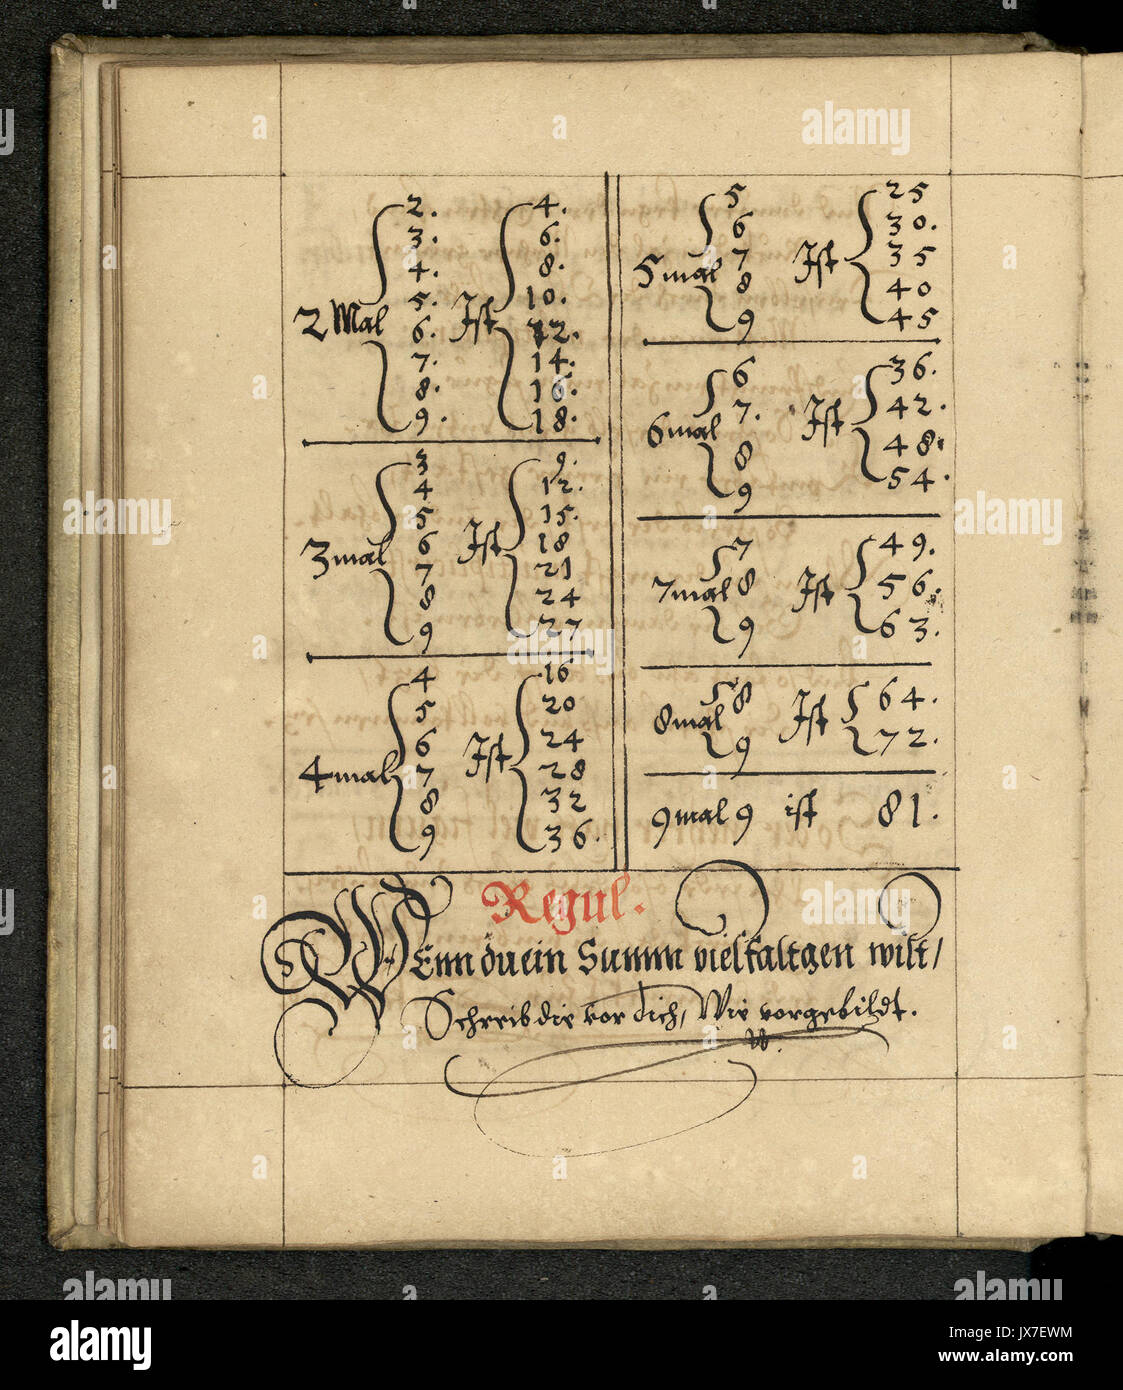 2 Mal 2. Ist 4.
3. 6.
4. 8.
5. 10.
6. 12.
7. 14.
8. 16.
9. 18.
3 mal 3 Ist 9.
4 12.
5 15.
6 18
7 21
8 24
9 27
4 mal 4 Ist 16
5 20
6 24
7 28
8 32
9 36.
5 mal 5 Ist 25
6 30.
7 35
8 40
9 45
6 mal 6 Ist 36.
7. 42.
8 48.
9 54.
7 mal 7 Ist 49.
8 56.
9 63.
8 mal 8 Ist 64.
9 72.
9 mal 9 ist 81.
Regul.
WEnn du ein Summ vielfaltgen wilt/
Schreib die vor dich/ Wie vorgebildt.
alamy
Image ID: JX7EWM
www.alamy.com